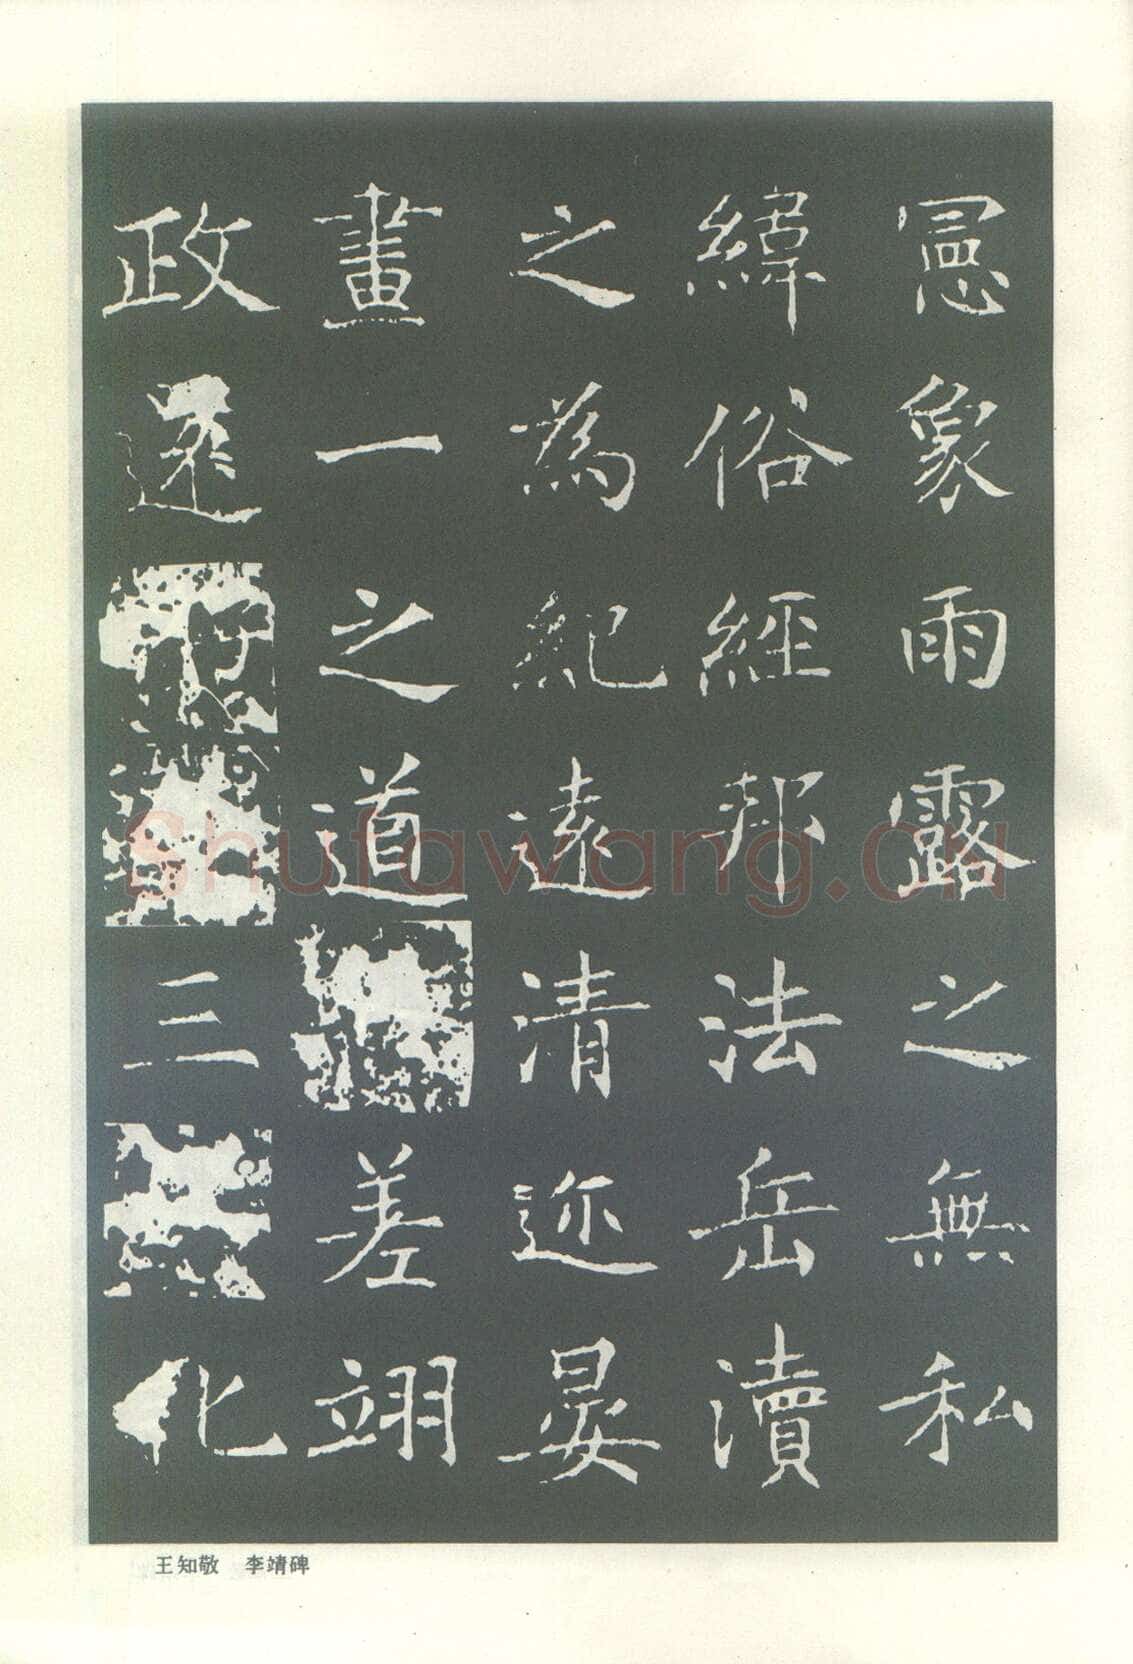 憲象雨露之無私
緯俗經邦法岳瀆
之為紀遠清迩晏
畫一之道差翊
政遂三化
王知敬 李靖碑
Shufawang.CN